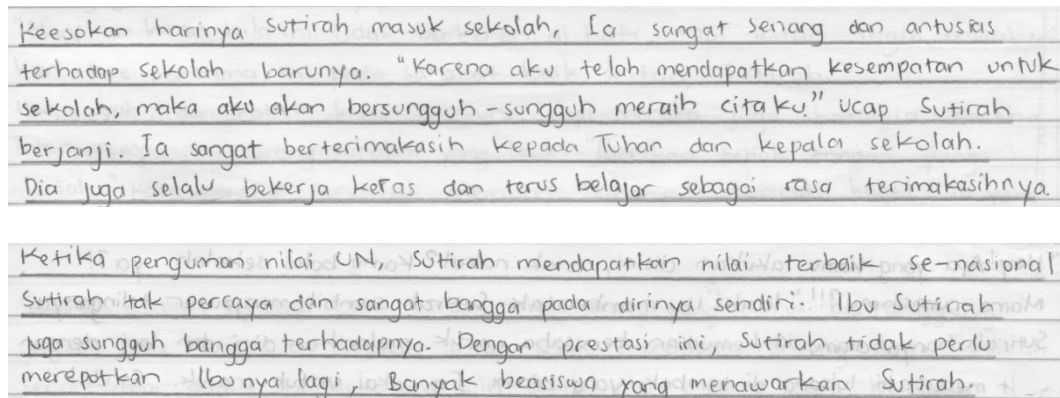 Keesokan harinya Sutirah masuk sekolah, Ia sangat senang dan antusias
terhadap sekolah barunya. "Karena aku telah mendapatkan kesempatan untuk
sekolah, maka aku akan bersungguh-sungguh meraih citaku." Ucap Sutirah
berjanji. Ia sangat berterimakasih kepada Tuhan dan kepala sekolah.
Dia juga selalu bekerja keras dan terus belajar sebagai rasa terimakasihnya.
Ketika penguman nilai UN, Sutirah mendapatkan nilai terbaik se-nasional
Sutirah tak percaya dan sangat bangga pada dirinya sendiri. Ibu Sutirah
juga sungguh bangga terhadapnya. Dengan prestasi ini, Sutirah tidak perlu
merepotkan Ibunya lagi, Banyak beasiswa yang menawarkan Sutirah.